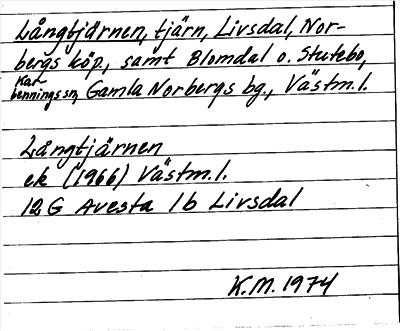 Långtjärnen, tjärn, Livsdal, Nor-
bergs köp., samt Blomdal o. Stutebo,
Kar
benningssn, Gamla Norbergs bg., Västm.l.
Långtjärnen
ek (1966) Västm.l.
12 G Avesta 1b Livsdal
K.M. 1974